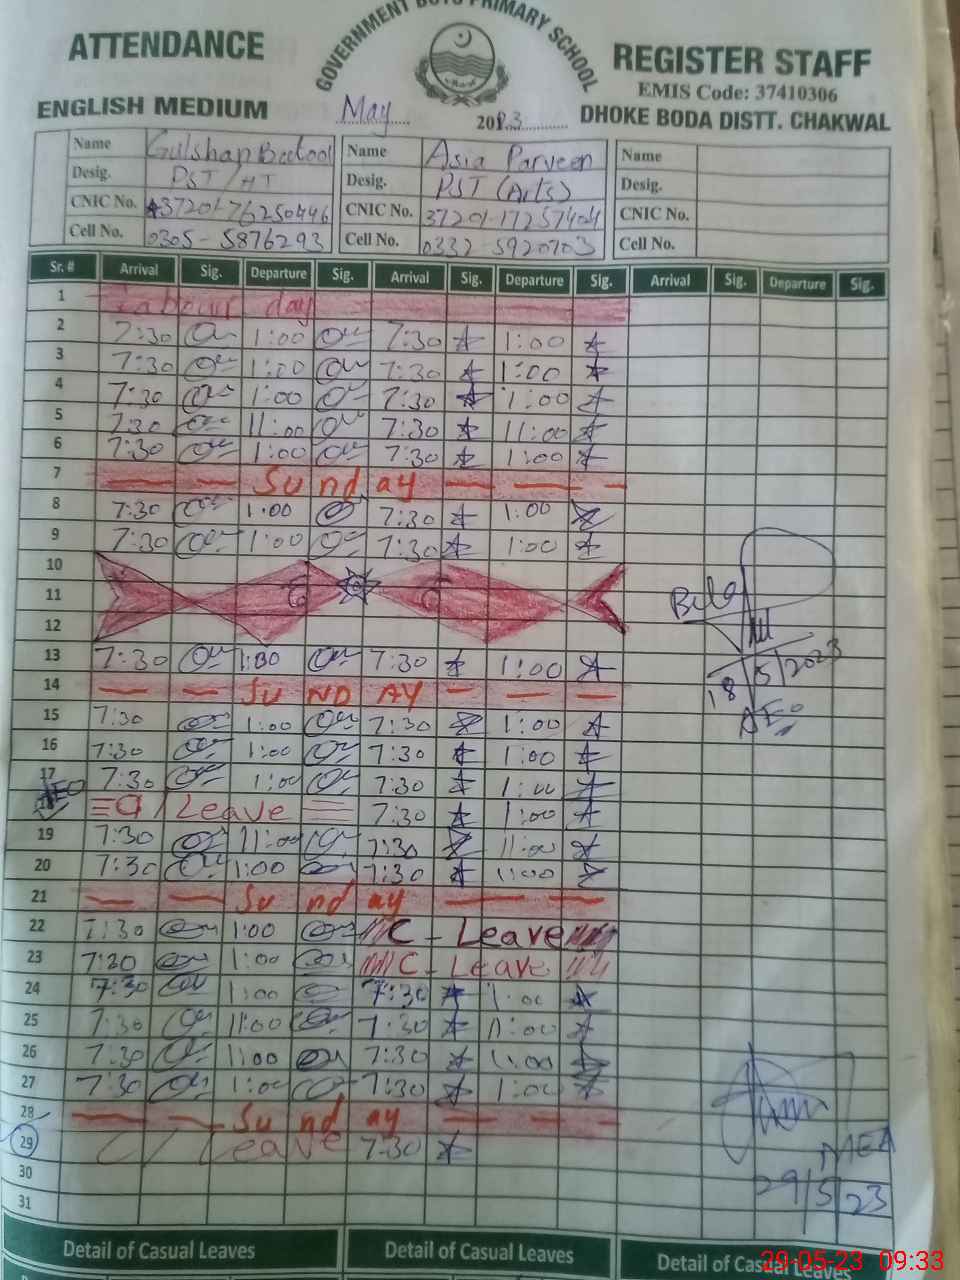 GOVERNMENT BOYS PRIMARY SCHOOL
ATTENDANCE REGISTER STAFF
EMIS Code: 37410306
ENGLISH MEDIUM May 2023 DHOKE BODA DISTT. CHAKWAL
Name Gulshan Bectool Name Asia Parveen Name
Desig. PST/HT Desig. PST (Arts) Desig.
CNIC No. 37201-76250446 CNIC No. 37201-17257404 CNIC No.
Cell No. 0305-5876293 Cell No. 0332 5920703 Cell No.
Sr. # Arrival Sig. Departure Sig. Arrival Sig. Departure Sig. Arrival Sig. Departure Sig.
1 Labour day
2 7:30 1:00 7:30 1:00
3 7:30 1:00 7:30 1:00
4 7:30 1:00 7:30 1:00
5 7:30 11:00 7:30 11:00
6 7:30 1:00 7:30 1:00
7 Sunday
8 7:30 1:00 7:30 1:00
9 7:30 1:00 7:30 1:00
10
11
12
13 7:30 1:00 7:30 1:00
14 SUNDAY
15 7:30 1:00 7:30 1:00
16 7:30 1:00 7:30 1:00
17 7:30 1:00 7:30 1:00
18 C/Leave 7:30 1:00
19 7:30 11:00 7:30 11:00
20 7:30 1:00 7:30 1:00
21 Sunday
22 7:30 1:00 C-Leave
23 7:20 1:00 C-Leave
24 7:30 1:00 7:30 1:00
25 7:30 11:00 7:30 11:00
26 7:30 11:00 7:30 11:00
27 7:30 1:00 7:30 1:00
28 Sunday
29 C/Leave 7:30
30
31
18/5/2023
AEO
MEA
29/5/23
Detail of Casual Leaves Detail of Casual Leaves Detail of Casual Leaves
29-05-23 09:33